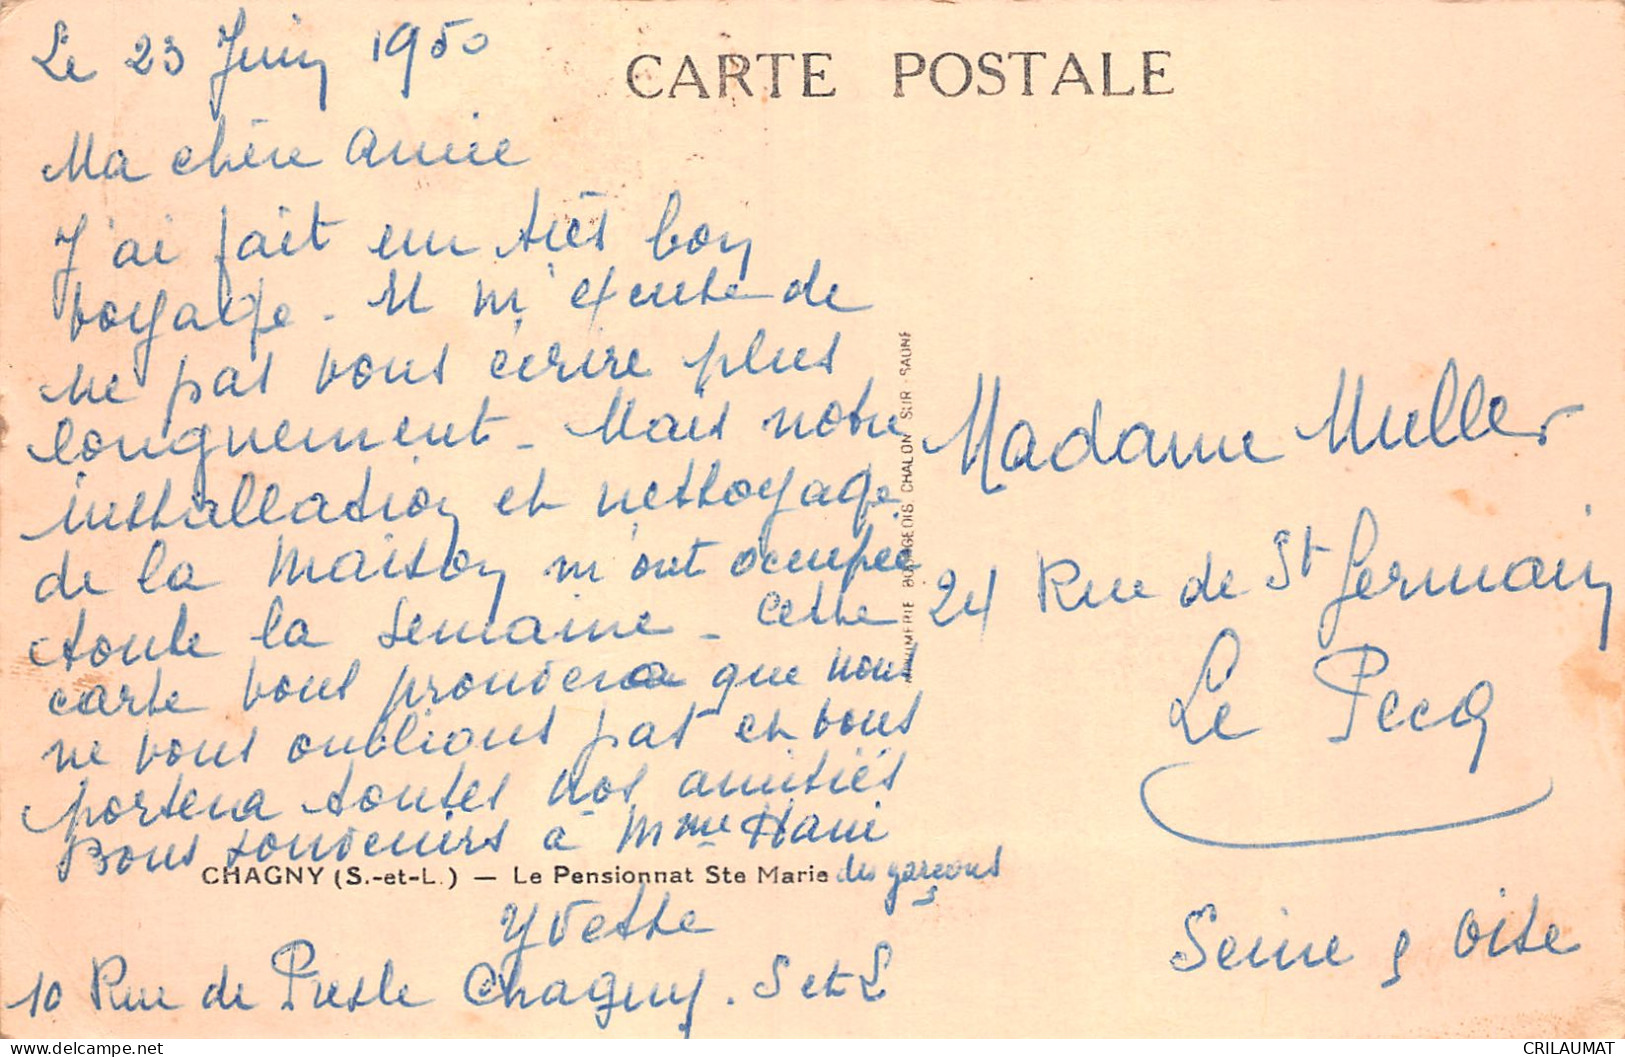 Le 23 Juin 1950
CARTE POSTALE
Ma chère amie
J'ai fait un très bon
voyage - Il m'excuse de
ne pas vous écrire plus
longuement - Mais notre
installation et nettoyage
de la maison m'ont occupée
toute la semaine - Cette
carte vous prouvera que nous
ne vous oublions pas et vous
portera toutes nos amitiés
Bons souvenirs à Mme
CHAGNY (S.-et-L.) — Le Pensionnat Ste Marie des garçons
Yvette
10 Rue de Chagny. S et L
IMPRIMERIE BOURGEOIS CHALON-SUR-SAONE
Madame Muller
24 Rue de St Germain
Le Pecq
Seine & Oise
delcampe.net
CRILAUMAT